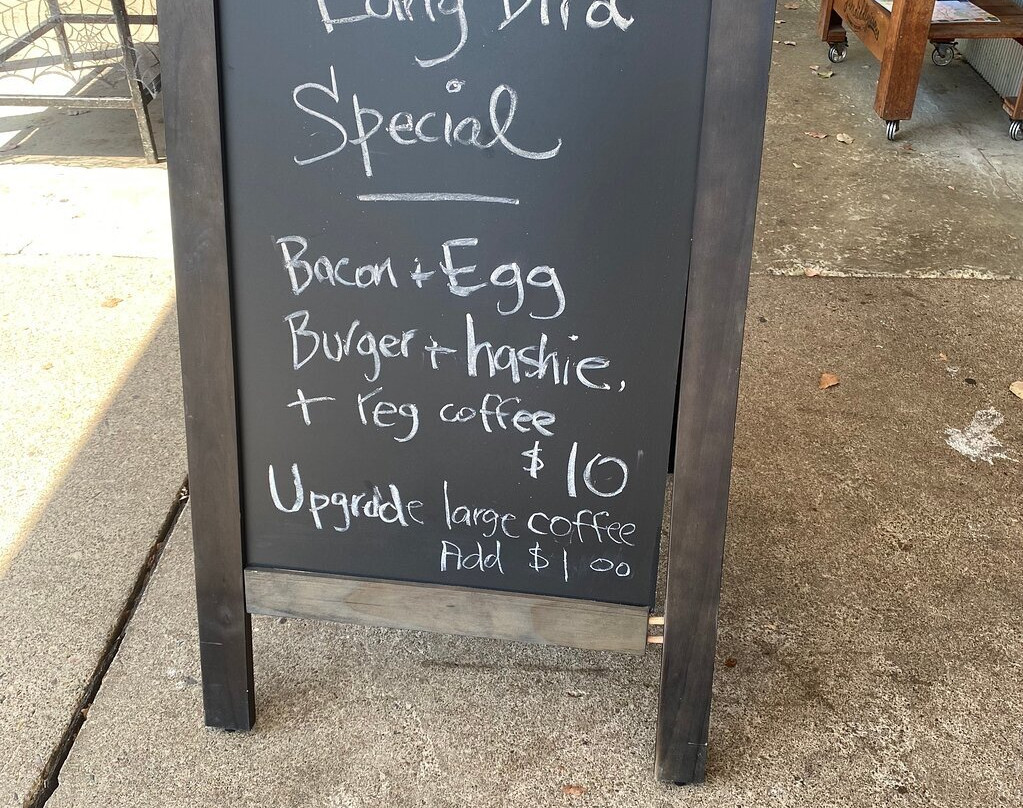 Early Bird
Special
Bacon + Egg
Burger + hashie,
+ reg coffee
$10
Upgrade large coffee
Add $1 00